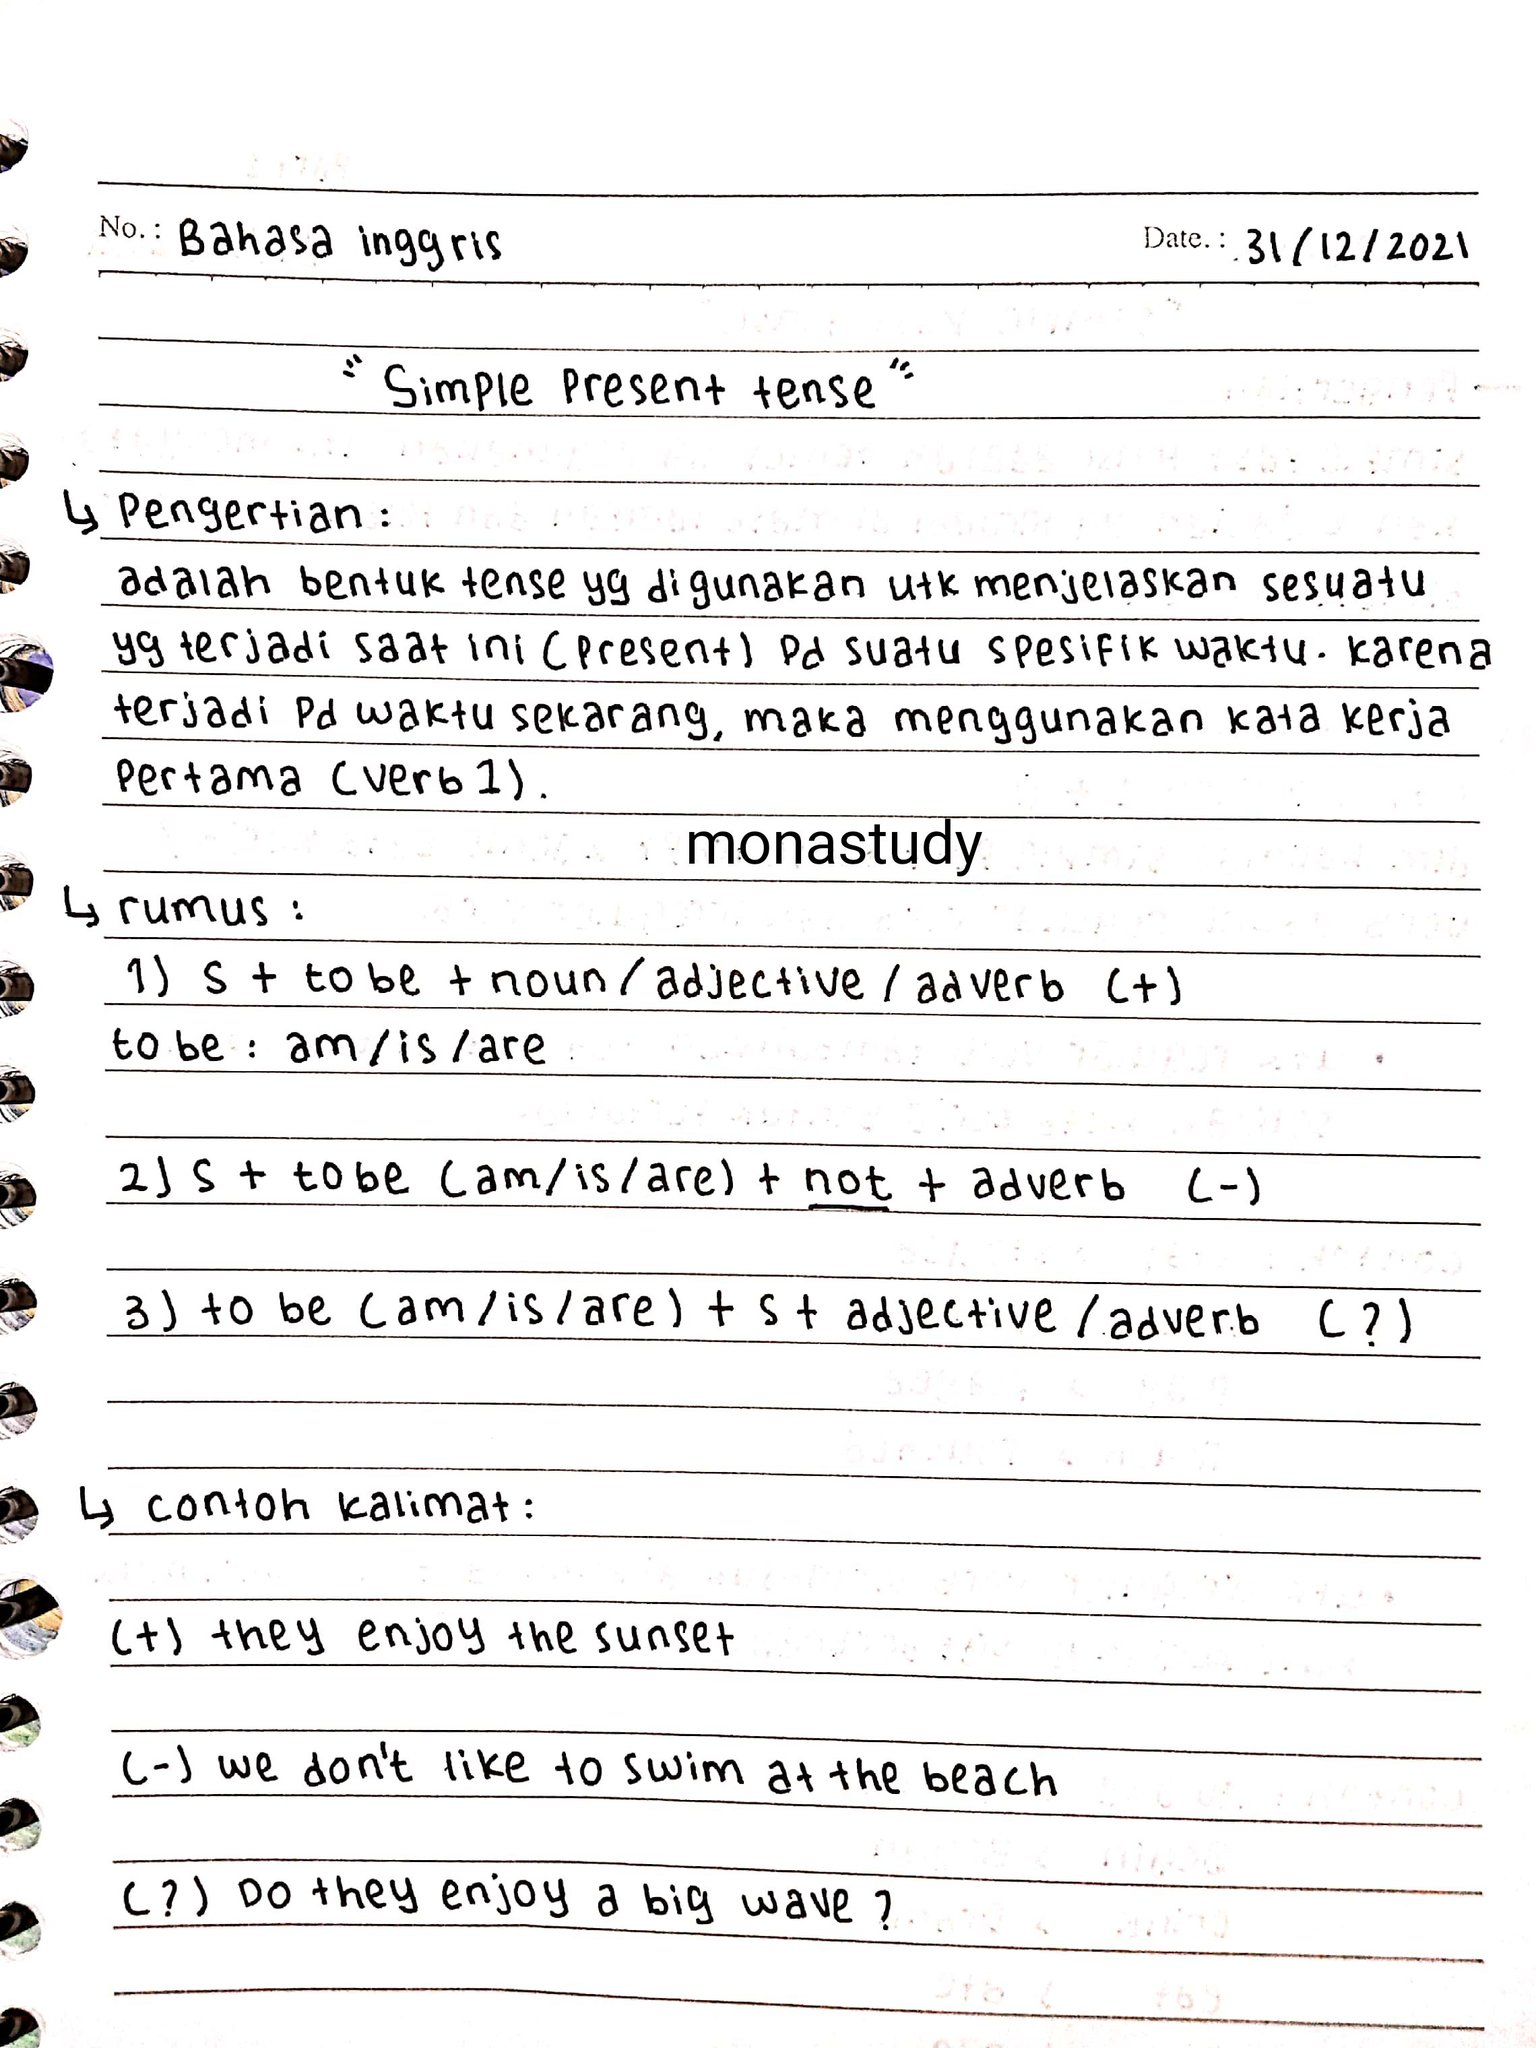 No. : Bahasa inggris Date. : 31/12/2021
"Simple Present tense"
↳ Pengertian :
adalah bentuk tense yg digunakan utk menjelaskan sesuatu
yg terjadi saat ini (present) pd suatu spesifik waktu. karena
terjadi Pd waktu sekarang, maka menggunakan kata kerja
Pertama (verb 1).
monastudy
↳ rumus :
1) S + to be + noun / adjective / adverb (+)
to be : am / is / are
2) S + to be (am/is/are) + not + adverb (-)
3) to be (am/is/are) + S + adjective / adverb (?)
↳ contoh kalimat :
(+) they enjoy the sunset
(-) we don't like to swim at the beach
(?) Do they enjoy a big wave ?